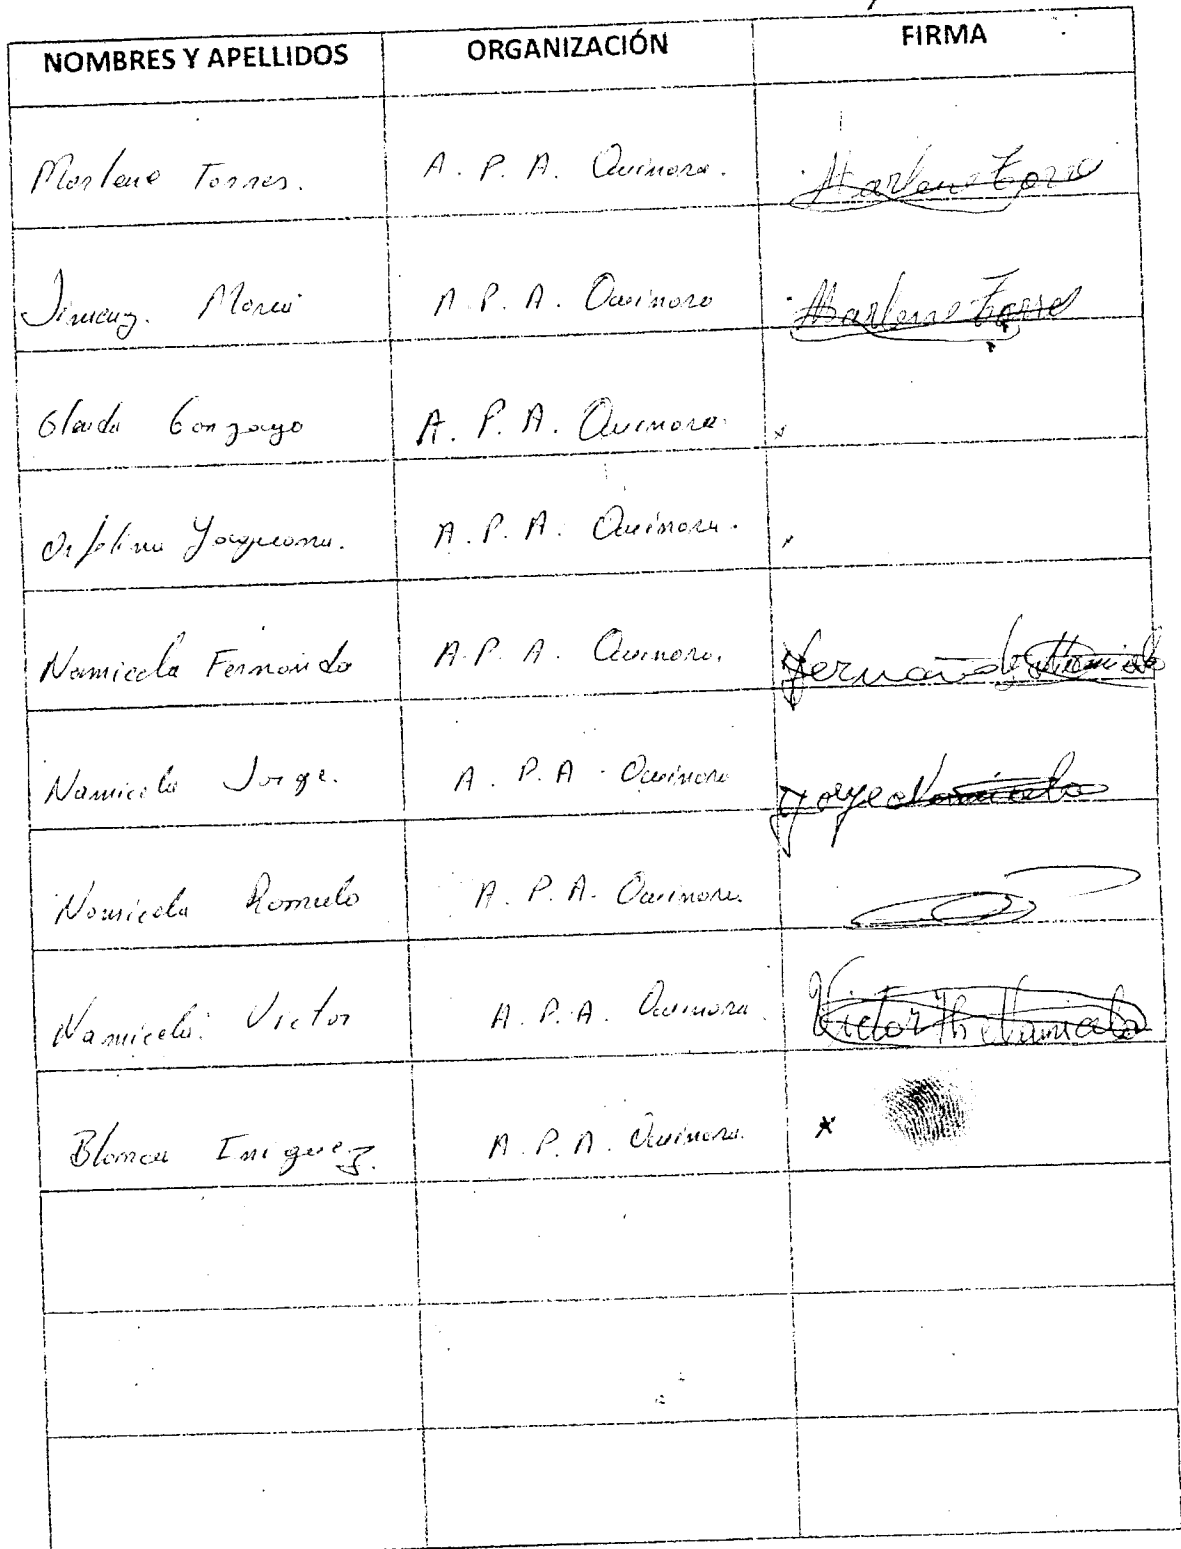 NOMBRES Y APELLIDOS ORGANIZACIÓN FIRMA
Marlene Torres. A. P. A. Quinara. Marlene Torre
Jimenez. Maria A. P. A. Quinara Marlene Torres
Glenda Gonzaga A. P. A. Quinara. x
A. P. A. Quinara. x
Namicela Fernando A. P. A. Quinara. Fernando Namicela
Namicela Jorge. A. P. A. Quinara Jorge Namicela
Namicela Romulo A. P. A. Quinara.
Namicela Victor A. P. A. Quinara. Victor Namicela
Blanca Iniguez. A. P. A. Quinara. x